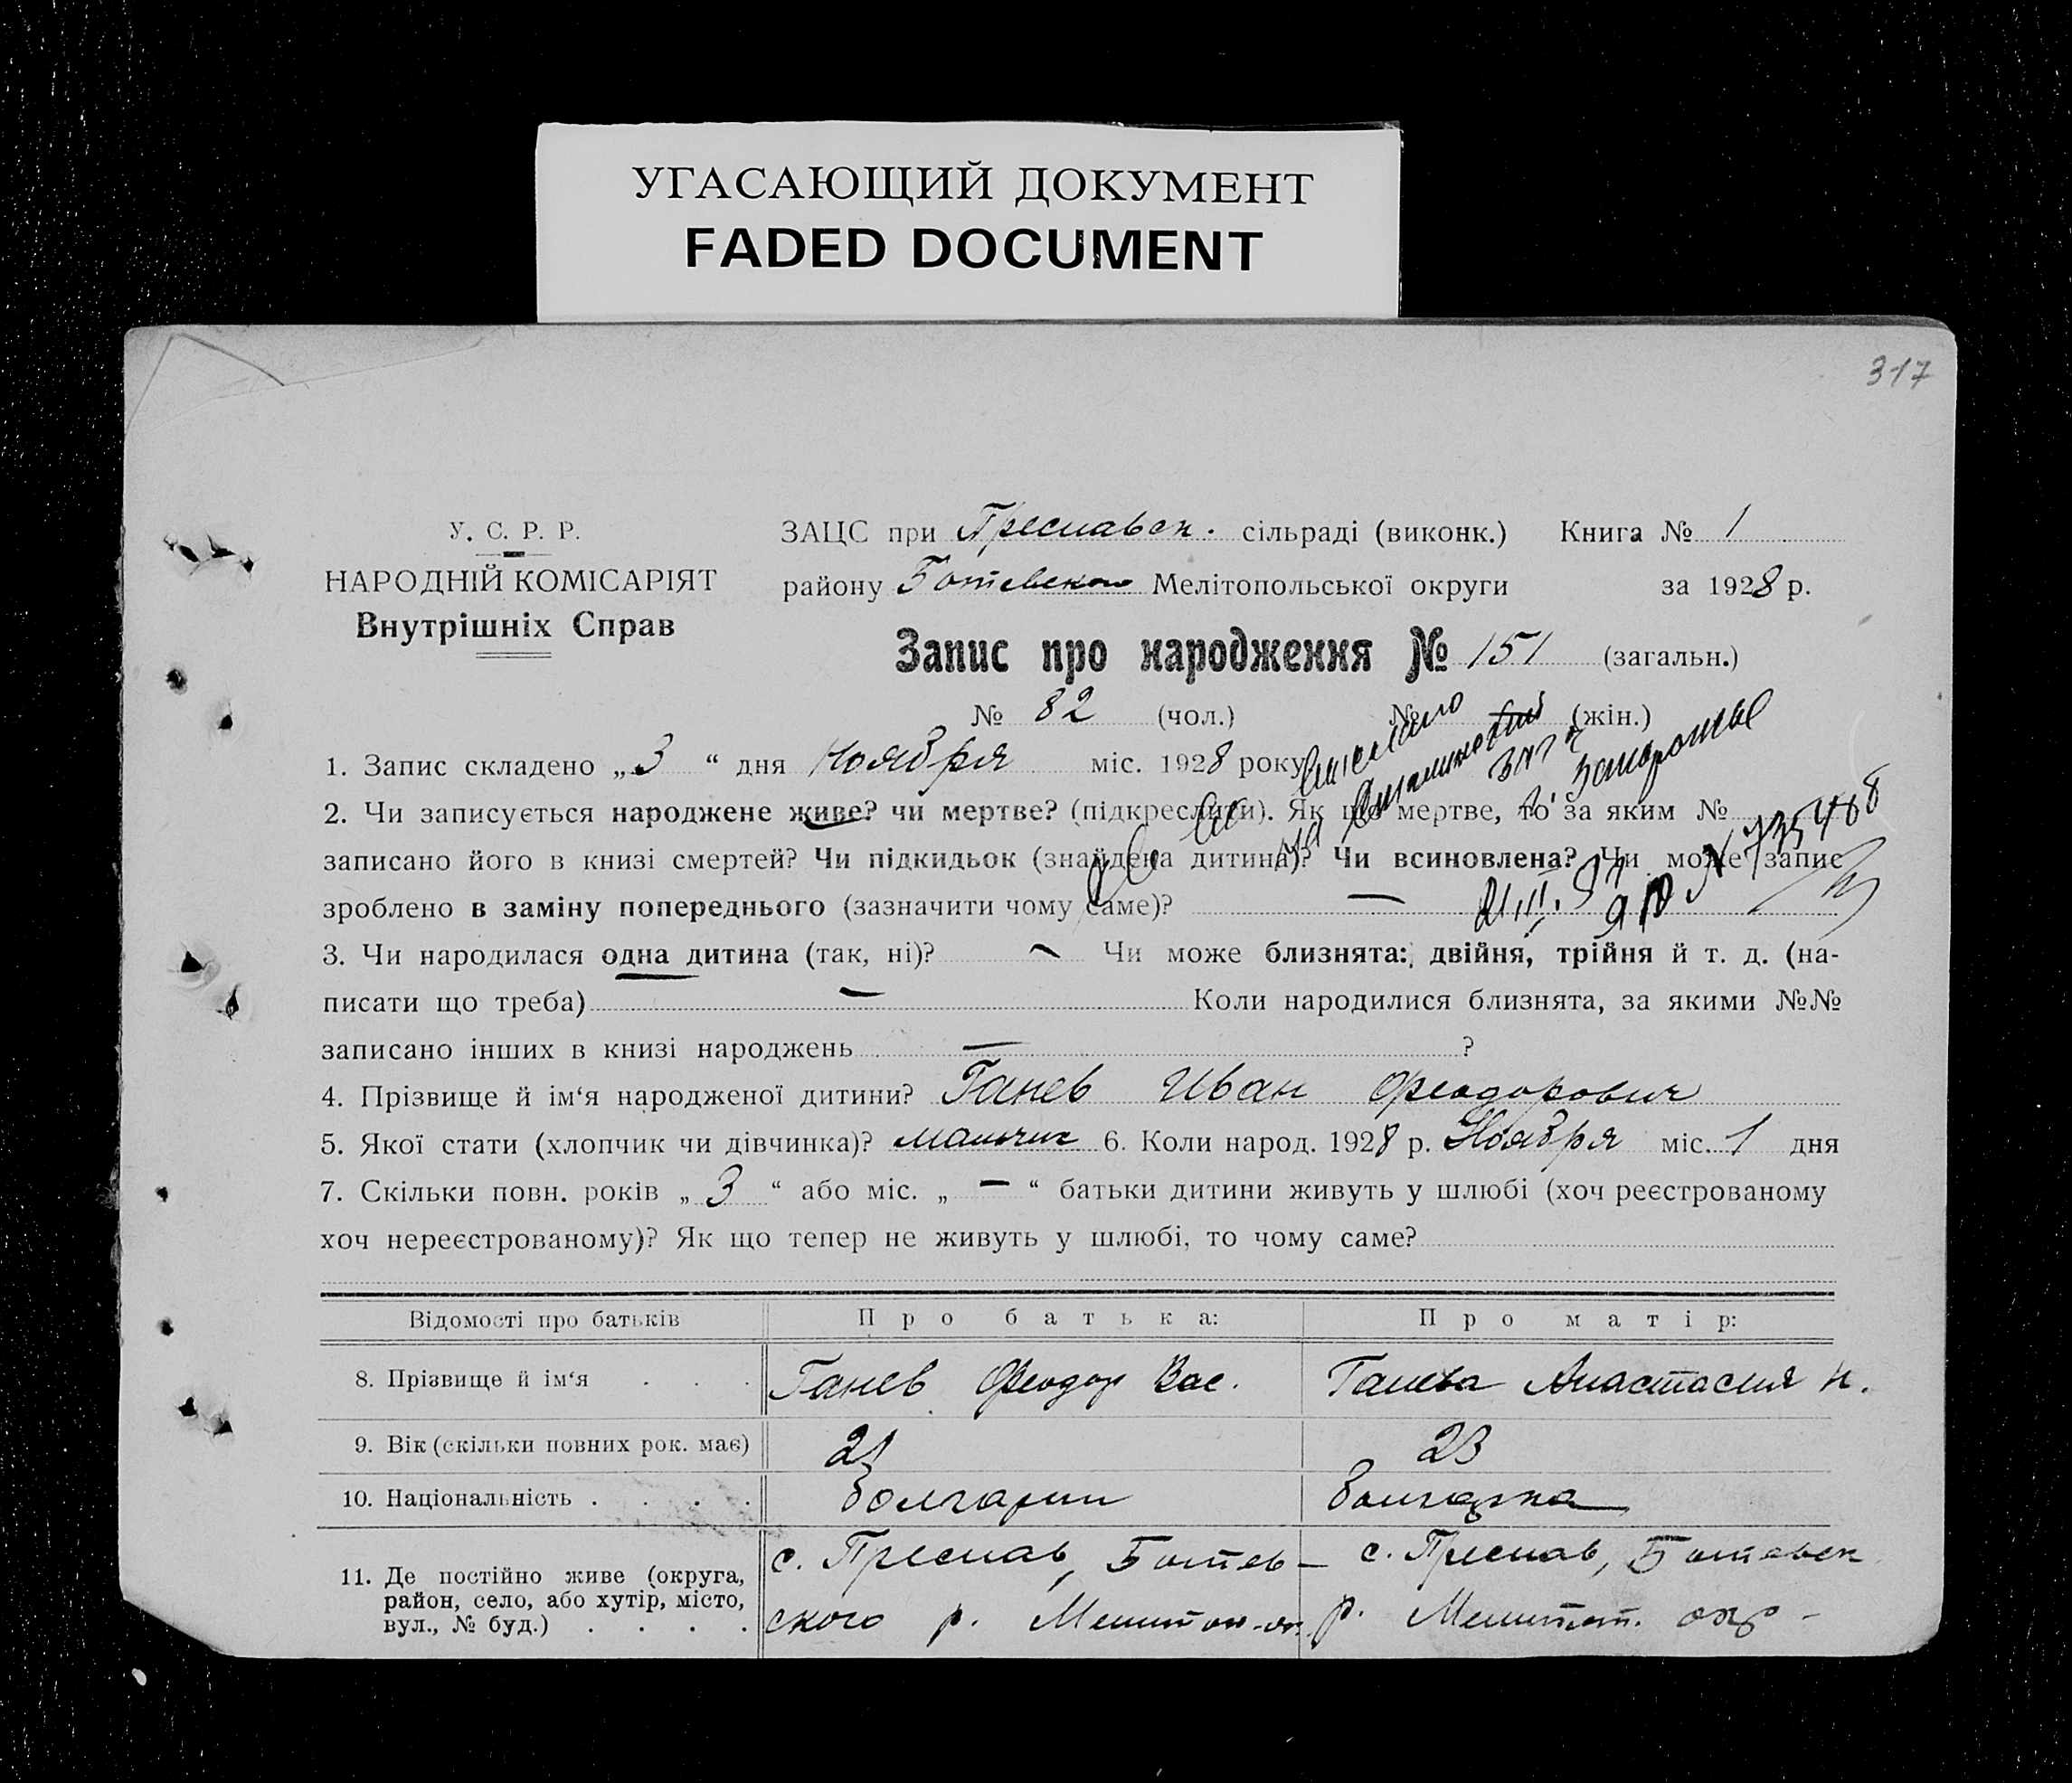 УГАСАЮЩИЙ ДОКУМЕНТ
FADED DOCUMENT
317
У. С. Р. Р.
НАРОДНІЙ КОМІСАРІЯТ
Внутрішніх Справ
ЗАЦС при Преславск. сільраді (виконк.) Книга № 1
району Ботевского Мелітопольської округи за 1928 р.
Запис про народження № 151 (загальн.)
№ 82 (чол.) № (жін.)
1. Запис складено „3“ дня Ноября міс. 1928 року
2. Чи записується народжене живе? чи мертве? (підкреслити). Як що мертве, то за яким №
записано його в книзі смертей? Чи підкидьок (знайдена дитина)? Чи всиновлена? Чи може запис
зроблено в заміну попереднього (зазначити чому саме)? —
3. Чи народилася одна дитина (так, ні)? — Чи може близнята: двійня, трійня й т. д. (на-
писати що треба) — Коли народилися близнята, за якими №№
записано інших в книзі народжень — ?
4. Прізвище й ім‘я народженої дитини? Ганев Иван Феодорович
5. Якої стати (хлопчик чи дівчинка)? мальчик 6. Коли народ. 1928 р. Ноября міс. 1 дня
7. Скільки повн. років „3“ або міс. „—“ батьки дитини живуть у шлюбі (хоч реєстрованому
хоч нереєстрованому)? Як що тепер не живуть у шлюбі, то чому саме?
Відомості про батьків Про батька: Про матір:
8. Прізвище й ім‘я . . . Ганев Феодор Вас. Ганева Анастасия Н.
9. Вік (скільки повних рок. має) 21 23
10. Національність . . . . болгарин болгарка
11. Де постійно живе (округа, район, село, або хутір, місто, вул., № буд.) . . . . с. Преслав, Ботев-
ского р. Мелитоп. ок. с. Преслав, Ботевск
р. Мелитоп. окр-